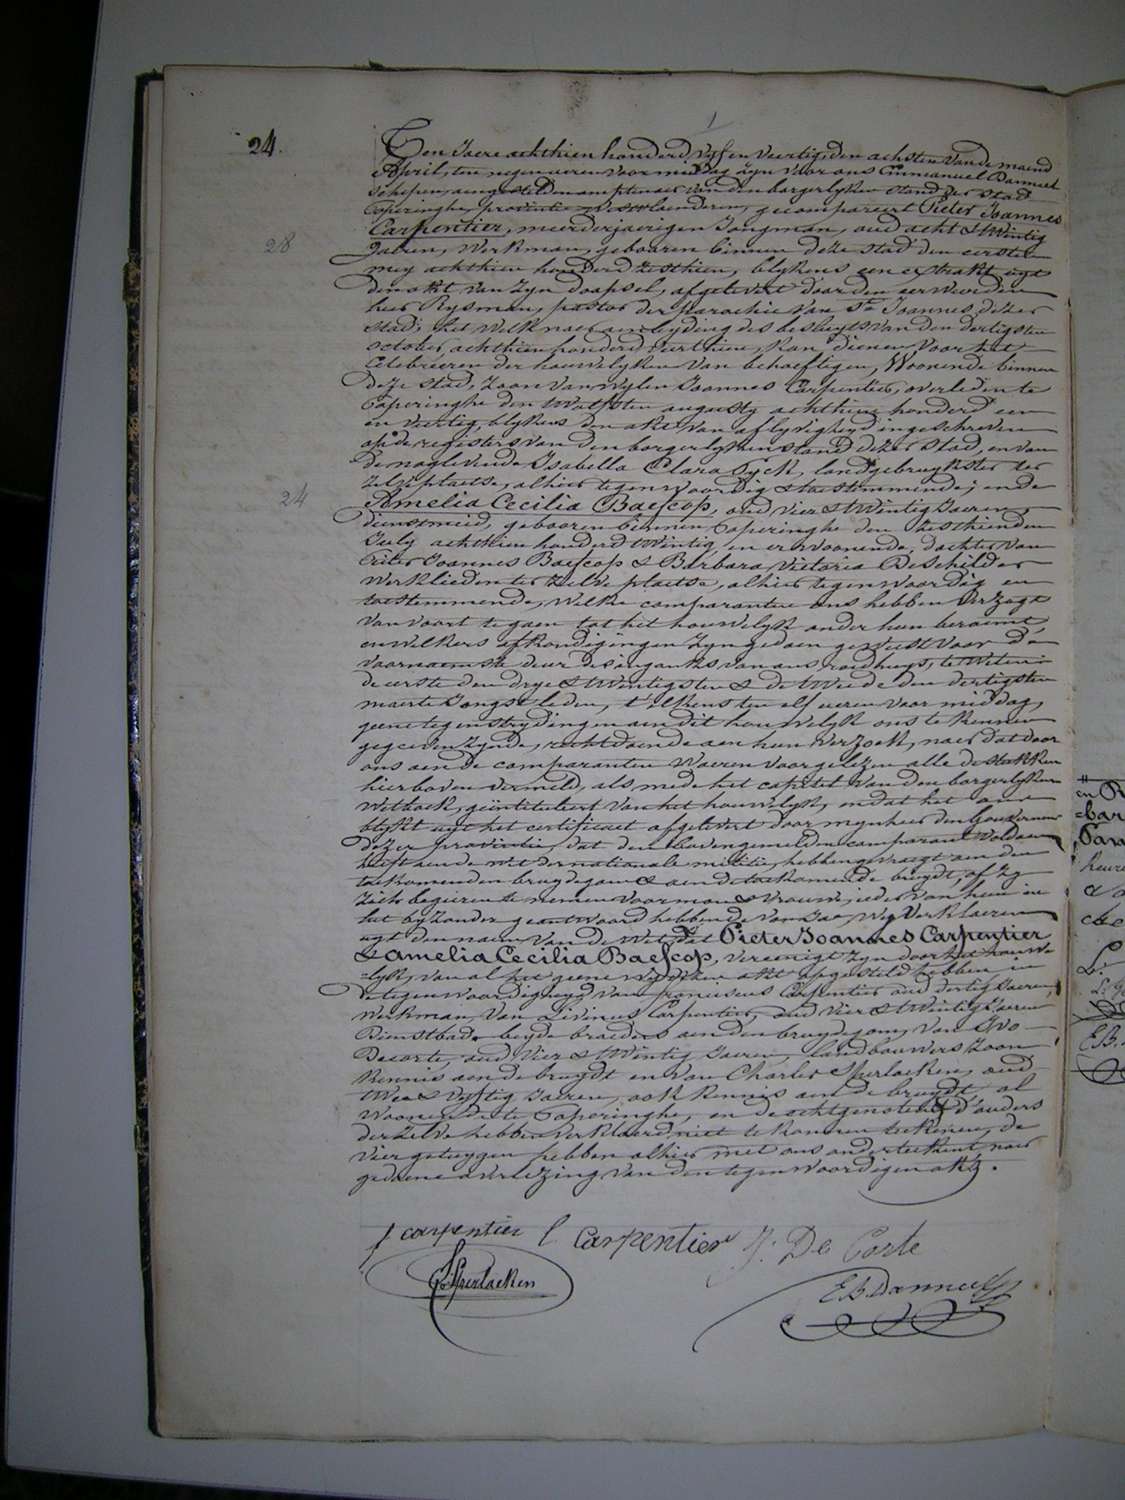 24.
Ten Jaere achthien honderd vyf en veertig, den achsten van de maend
April, ten negen ueren voormiddag zyn voor ons Emmanuel Dannuel
Schepen, aengestelden amptenaer van den borgerlyken stand der Stad
Poperinghe, provintie Westvlaenderen, gecompareert Pieter Joannes
Carpentier, meerderjaerigen Jongman, oud acht & twintig
28
Jaeren, werkman, gebooren binnen deze stad den eersten
mey achthien honderd zesthien, blykens een extrakt uyt
den akt van zyn doopsel, afgelevert door den eerweerden
heer Rysman, pastor der parochie van St Joannes, dezer
stad; het welk naer aenleyding des besluyts van den dertigsten
october achthien honderd veerthien, kan dienen voor het
Celebreeren der houwelyken van behoeftigen, Woonende binnen
deze stad, zoon van wylen Joannes Carpentier, overleden te
Poperinghe den twalfsten augusty achthien honderd een
en veertig, blykens den akt van aflyvigheyd ingeschreven
op de registers van den borgerlyken stand dezer stad, en van
de naglevende Isabella Clara Syck, landgebruykster ter
24
zelve plaetse, alhier tegenwoordig & toestemmende; ende
Amelia Cecilia Baescop, oud vier & twintig Jaeren,
dienstmeid, gebooren binnen Poperinghe den zesthienden
July achthien honderd twintig, en er woonende, dochter van
Pieter Joannes Baescop & Barbara Victoria Deschilder
werklieden ter zelve plaetse, alhier tegenwoordig en
toestemmende, welke comparanten ons hebben verzogt
van voort te gaen tot het houwelyk onder hun beraemt,
en welkers afkondigingen zyn gedaen geweest voor de
voornaemste deur des ingangs van ons raedhuys, te weten:
de eerste den drye & twintigsten & de tweede den dertigsten
maerte Jongst leden, t'elkens ten elf ueren voor middag,
geene tegenstrydingen aen dit houwelyk ons te kennen
gegeven zynde, rechtdoende aen hun verzoek, naer dat door
ons aen de comparanten waeren voorgelezen alle de stukken
hierboven vermeld, als mede het capittel van den borgerlyken
wetboek, geintituleert van het houwelyk, en dat het ons
blykt uyt het certificaet afgelevert door mynheer den Gouverneur
dezer provintie, dat den bovengemelden comparant voldaen
heeft aen de wet der nationale militie, hebben gevraegt aen den
toekomenden bruydegom & aen de toekomende bruydt, of zy
zich begeeren te nemen voor man & vrouwe; ieder van hun in
het byzonder geantwoord hebbende van Jae, Wy Verklaeren
uyt den naem van de Wet, dat Pieter Joannes Carpentier
& Amelia Cecilia Baescop, vereenigt zyn door het houwe-
lyk, van al het geene wy dezen akt opgesteld hebben in
de tegenwoordigheyd van franciscus Carpentier oud dertig Jaeren,
werkman, van Livinus Carpentier, oud vier & twintig Jaeren
Dienstbode beyde broeders aen den bruydegom, van Ivo
Decorte, oud vier & twintig Jaeren, landbouwers zoon
kennis aen de bruydt en van Charles Sperlaeken, oud
twee & vyftig Jaeren, ook kennis aen de bruydt, al
woonende te Poperinghe, en de echtgenoten & d'ouders
derzelve hebben verklaerd niet te konnen teekenen, de
vier getuygen hebben alhier met ons onderteekent, naer
gedaene overlezing van den tegenwoordigen akt.
f carpentier l Carpentier J. De Corte
C. Sperlaeken
E B Dannuel